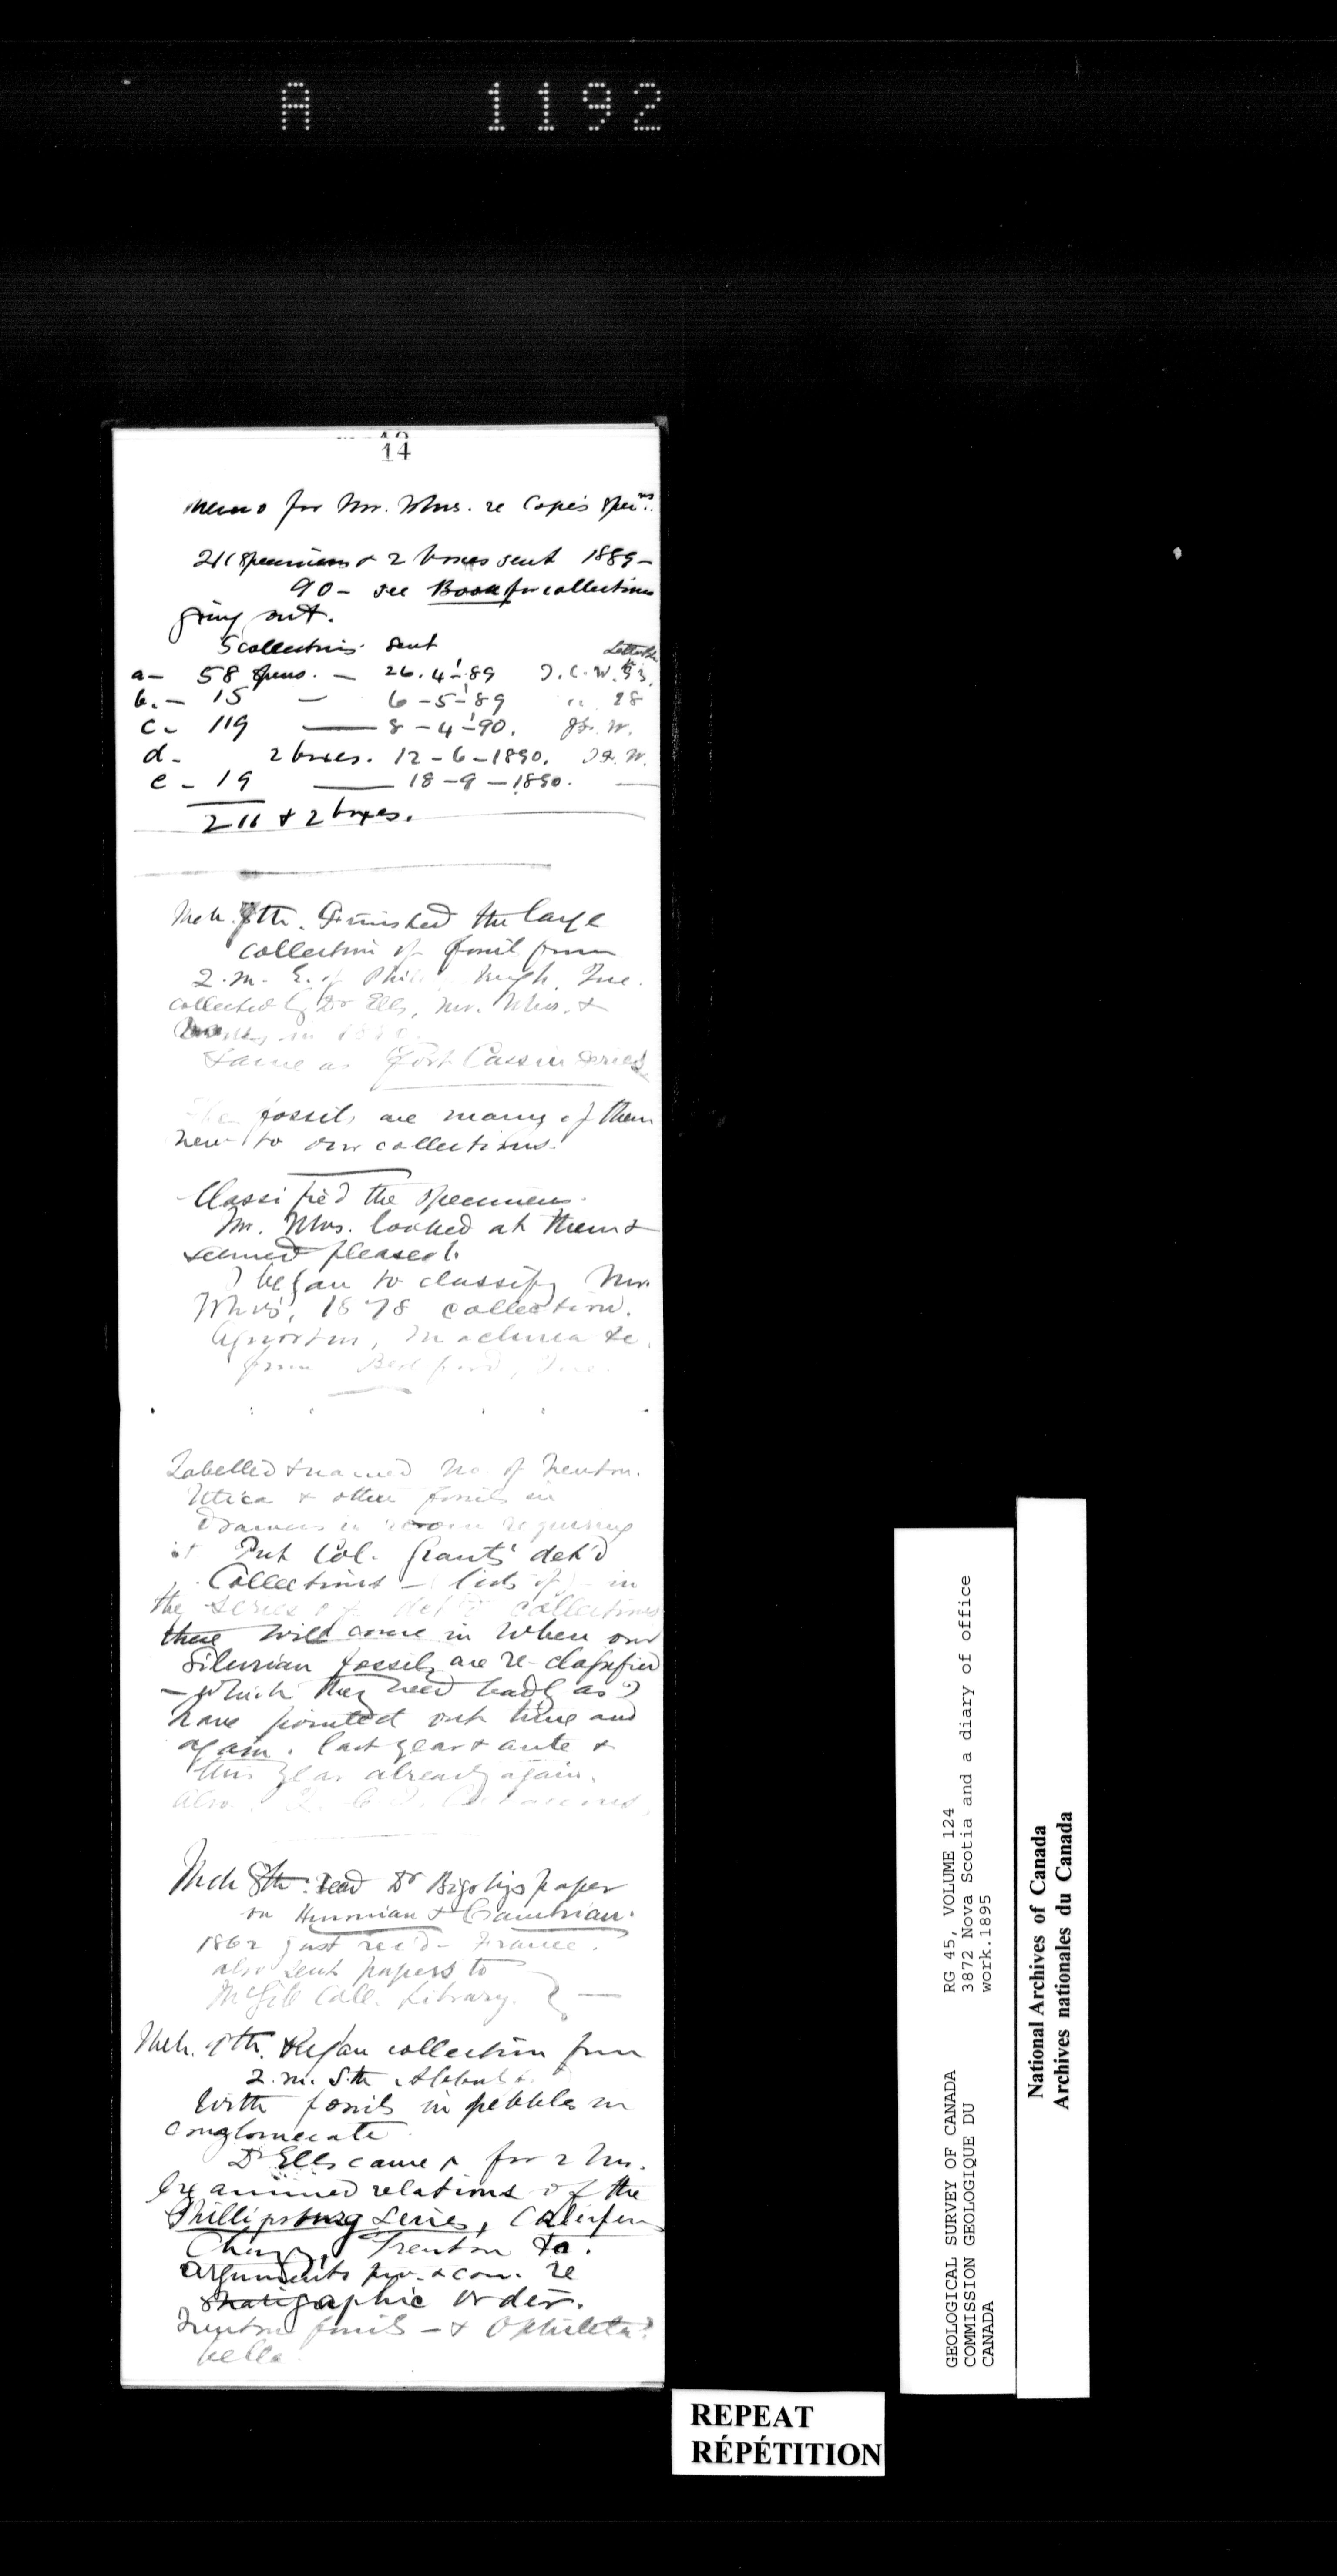 A 1192
14
Memo for Mr. Whvs. re Cope's Spec.ns
211 Specimens & 2 boxes sent 1889-
90 - see Book for collections
going out.
5 collections sent
a - 58 Spns. - 26.4-'89 J.C.W.
b. - 15 - 6-5-'89 " 28
c - 119 - 8-4-'90. W.
d - 2 boxes. 12-6-1890. W.
e - 19 - 18-9-1890. -
211 & 2 boxes.
Mch. 7th. Finished the large
collection of fossils from
2. m. E. of Que.
collected by Dr Ells, Mr. Whvs. &
in 1890.
Same as Fort Cassin series
The fossils are many of them
new to our collections.
Classified the specimens.
Mr. Whvs. looked at them &
seemed pleased.
I began to classify Mr.
1878 collection.
Maclurea &c.
from Bedford, Que.
Labelled & named no. of Trenton.
Utica & other fossils in
drawers in room requiring
it. Put Col. Grant's det'd
Collections - (lists of) - in
the series of det'd collections
these will come in when our
Silurian fossils are re-classified
- which they need badly as I
have pointed out time and
again. last year & ante &
this year already again.
Also
Mch 8th. read Dr Bigsby's paper
on Huronian & Cambrian.
1862 just rec'd - France.
also sent papers to
McGill Coll. Library. -
Mch. 9th. Began collection from
2. m. Sth.
With fossils in pebbles in
conglomerate
Dr Ells came for 2 hrs.
Examined relations of the
Phillipsburg Series, Calciferous
Chazy, Trenton &c.
arguments pro. & con. re
stratigraphic order.
Trenton fossils - & Ophileta?
bella
REPEAT
RÉPÉTITION
GEOLOGICAL SURVEY OF CANADA
COMMISSION GEOLOGIQUE DU
CANADA
RG 45, VOLUME 124
3872 Nova Scotia and a diary of office
work.1895
National Archives of Canada
Archives nationales du Canada